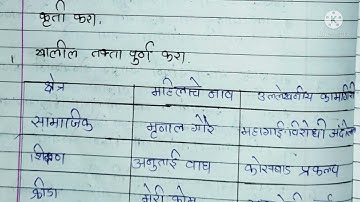 कृती करा.
1. खालील तक्ता पुर्ण करा.
क्षेत्र महिलांचे नाव उल्लेखनीय कामगिरी
सामाजिक मृनाल गोरे महागाई विरोधी अंदोलन
शिक्षण अनुताई वाघ कोसबाड प्रकल्प
क्रीडा मेरी कोम